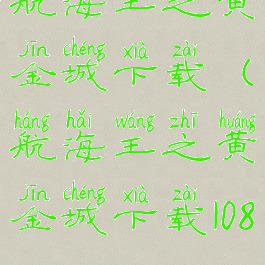 航海王之黄
jīn chéng xià zài
金城下载(
háng hǎi wáng zhī huáng
航海王之黄
jīn chéng xià zài
金城下载108